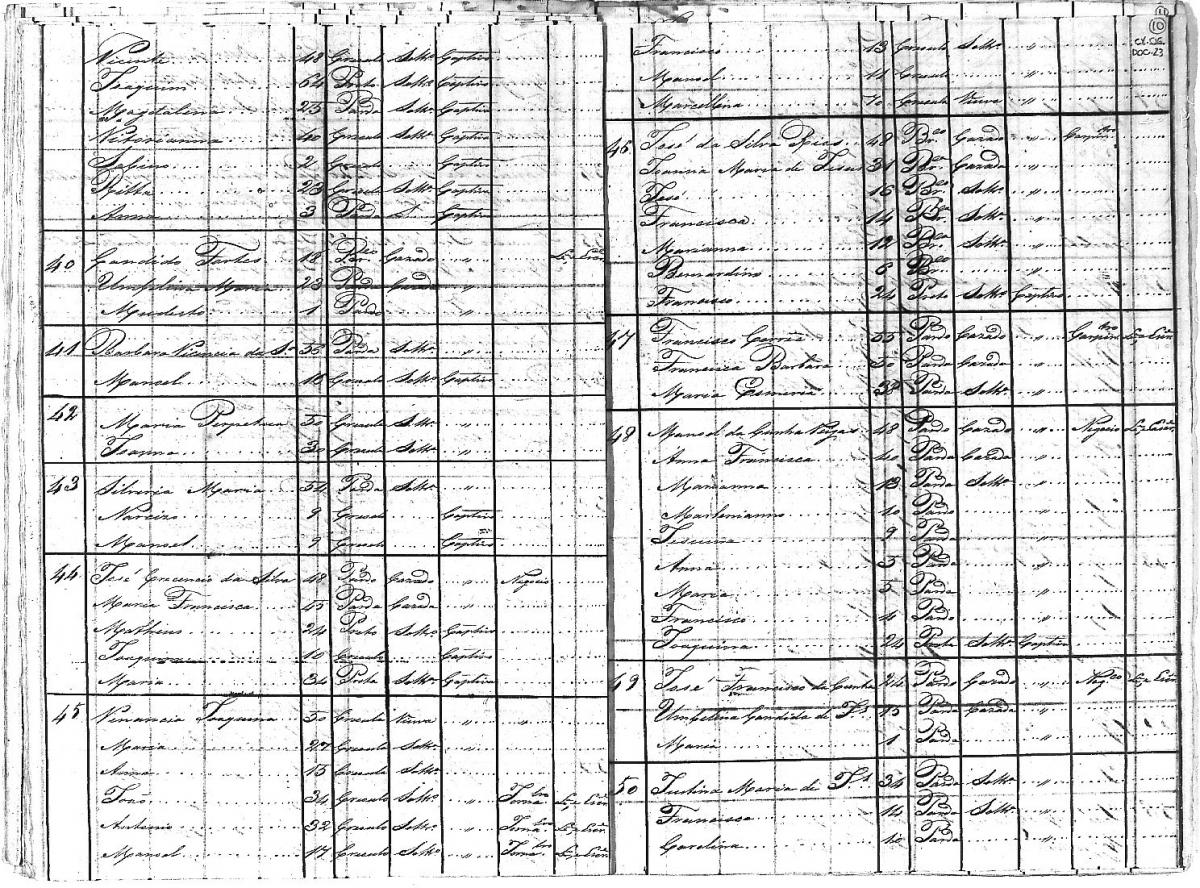 Vicente 48 Creoulo Soltro Captivo
Joaquim 64 Preto Soltro Captivo
Magdalena 25 Parda Soltra Captiva
Vitorianna 40 Creoula Soltra Captiva
Sabino 2 Creoulo Captivo
Ritta 23 Creoula Soltra Captiva
Anna 3 Parda Captiva
40 Candido Fortes 18 Brco Cazado
Umbelina Maria 23 Parda Cazada "
Modesto 1 Pardo "
41 Barbara Vicencia da Sa 35 Parda Soltra "
Manoel 18 Creoulo Soltro Captivo
42 Maria Perpetua 50 Creoula Soltra "
Joanna 30 Creoula Soltra "
43 Silveria Maria 54 Parda Soltra "
Narcizo 9 Creoulo Captivo
Manoel 9 Creoulo Captivo
44 José Crecencio da Silva 48 Pardo Cazado " Negocio
Maria Francisca 45 Parda Cazada "
Matheus 24 Preto Soltro Captivo
10 Captivo
Maria 34 Preta Soltra Captiva
45 Venancia Joaquina 50 Creoula Viuva " "
Maria 27 Creoula Soltra "
Anna 15 Creoula Soltra "
João 34 Creoulo Soltro "
Antonio 32 Creoulo Soltro "
Manoel 17 Creoulo Soltro "
10
DOC-23
Francisco 13 Creoulo Soltro "
Manoel 11 Creoulo "
Marcellina 70 Creoula Viuva "
46 José da Silva Rios 48 Brco Cazado "
Joanna Maria de Jesus 31 Brca Cazada "
José 16 Brco Soltro "
Francisca 14 Brca Soltra "
Marianna 12 Brca Soltra "
Bernardino 6 Brco "
Francisco 24 Preto Soltro Captivo
47 Francisco 55 Pardo Cazado "
Francisca Barbara 50 Parda Cazada "
Maria Parda Soltra "
48 Manoel da Cunha 48 Pardo Cazado " Negocio
Anna Francisca 40 Parda Cazada "
Marianna 13 Parda Soltra "
10 Pardo "
Jesuina 9 Parda "
Anna 5 Parda "
Maria 5 Parda "
Francisco 4 Pardo "
Joaquina 24 Preta Soltra Captiva
49 José Francisco da Cunha 24 Pardo Cazado " Negco
Umbelina Candida de Js 15 Parda Cazada "
Maria 1 Parda "
50 Justina Maria de Js 34 Parda Soltra "
Francisca 14 Parda Soltra "
Carolina 10 Parda "